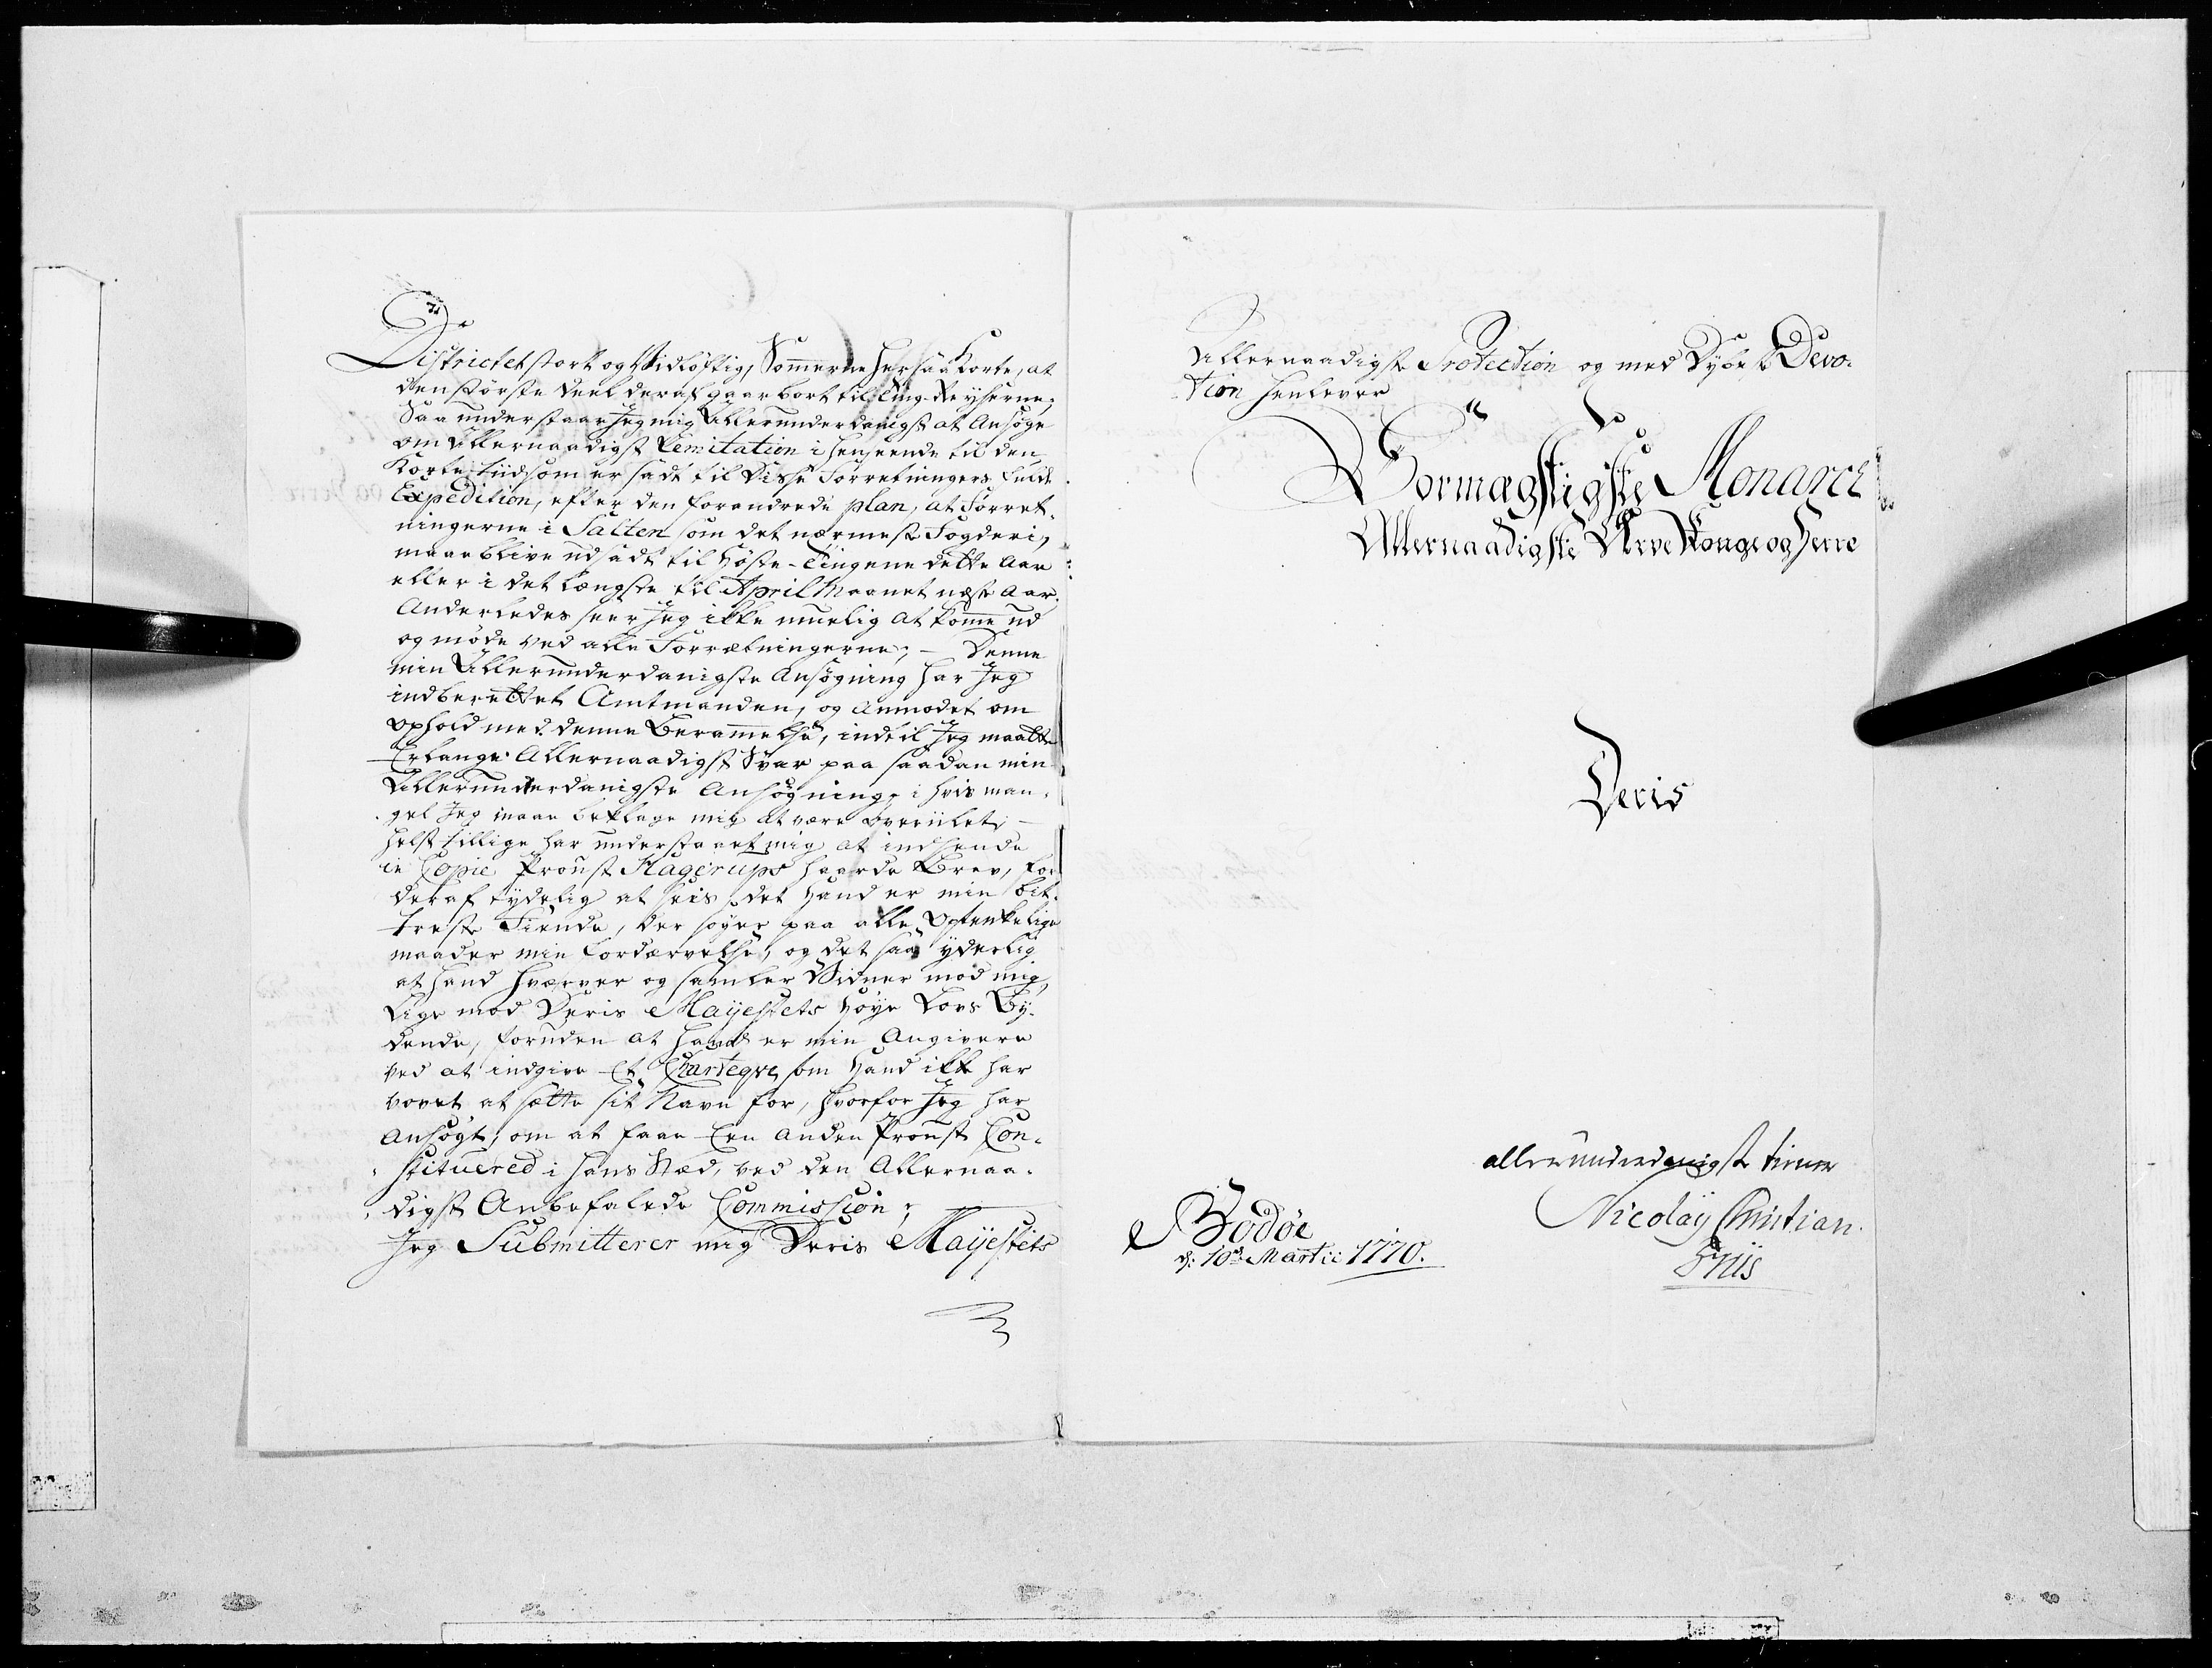 Districtet stort og Vidløftig, Somerne her saa Korte, at
den største Deel deraf gaar bort til Ting-Reyserne;
Saa understaar Jeg mig Allerunderdanigst at Ansøge
om Allernaadigst Lemitation i henseende til den
Korte tiid som er sadt til Disse Forretningers fulde
Expedition, efter den forandrede plan, at Forret-
ningerne i Salten som det nærmeste Fogderi,
maae blive udsadt til Høste-Tingene dette Aar
eller i det længste til April Maanet næste Aar.
Anderledes seer Jeg ikke muelig at kome ud
og møde ved alle Forrætningerne; — Denne
min Allerunderdanigste Ansøgning har Jeg
indberettet Amtmanden, og anmodet om
Ophold med denne Beramelse, indtil Jeg maatte
Erlange Allernaadigst Svar paa saadan min
Allerunderdanigste Ansøgning, i hvis man-
gel Jeg maae beklage mig at være overiilet; —
helst tillige har understaaet mig at indsende
in Copie Proust Hagerups haarde Brev, for
deraf tydelig at seis, det Hand er min bit-
treste Fiende, der søger paa alle Optenkelige
maader min fordærvelse, og det saa yderlig
at hand hverver og samler Vidner mod mig,
Lige mod Deris Mayestets høye Lovs By-
dende, foruden at Hand er min Angivere
ved at indgive Et Charteqve som Hand ikke har
vovet at sætte sit Navn for, hvorfor Jeg har
Ansøgt, om at faae Een anden Proust Con-
stituered i hans Sted, ved den Allernaa-
digst Anbefalede Commission;
Jeg Submitterer mig Deris Mayestets
Allernaadigste Protection og med Dybest Devo-
tion henlever
Stormægtigste Monarch
Allernaadigste Arve Konge og Herre
Deris
allerunderdanigste tiener
Nicolaÿ Christian
Friis
Bodøe
d: 10de Martii 1770.